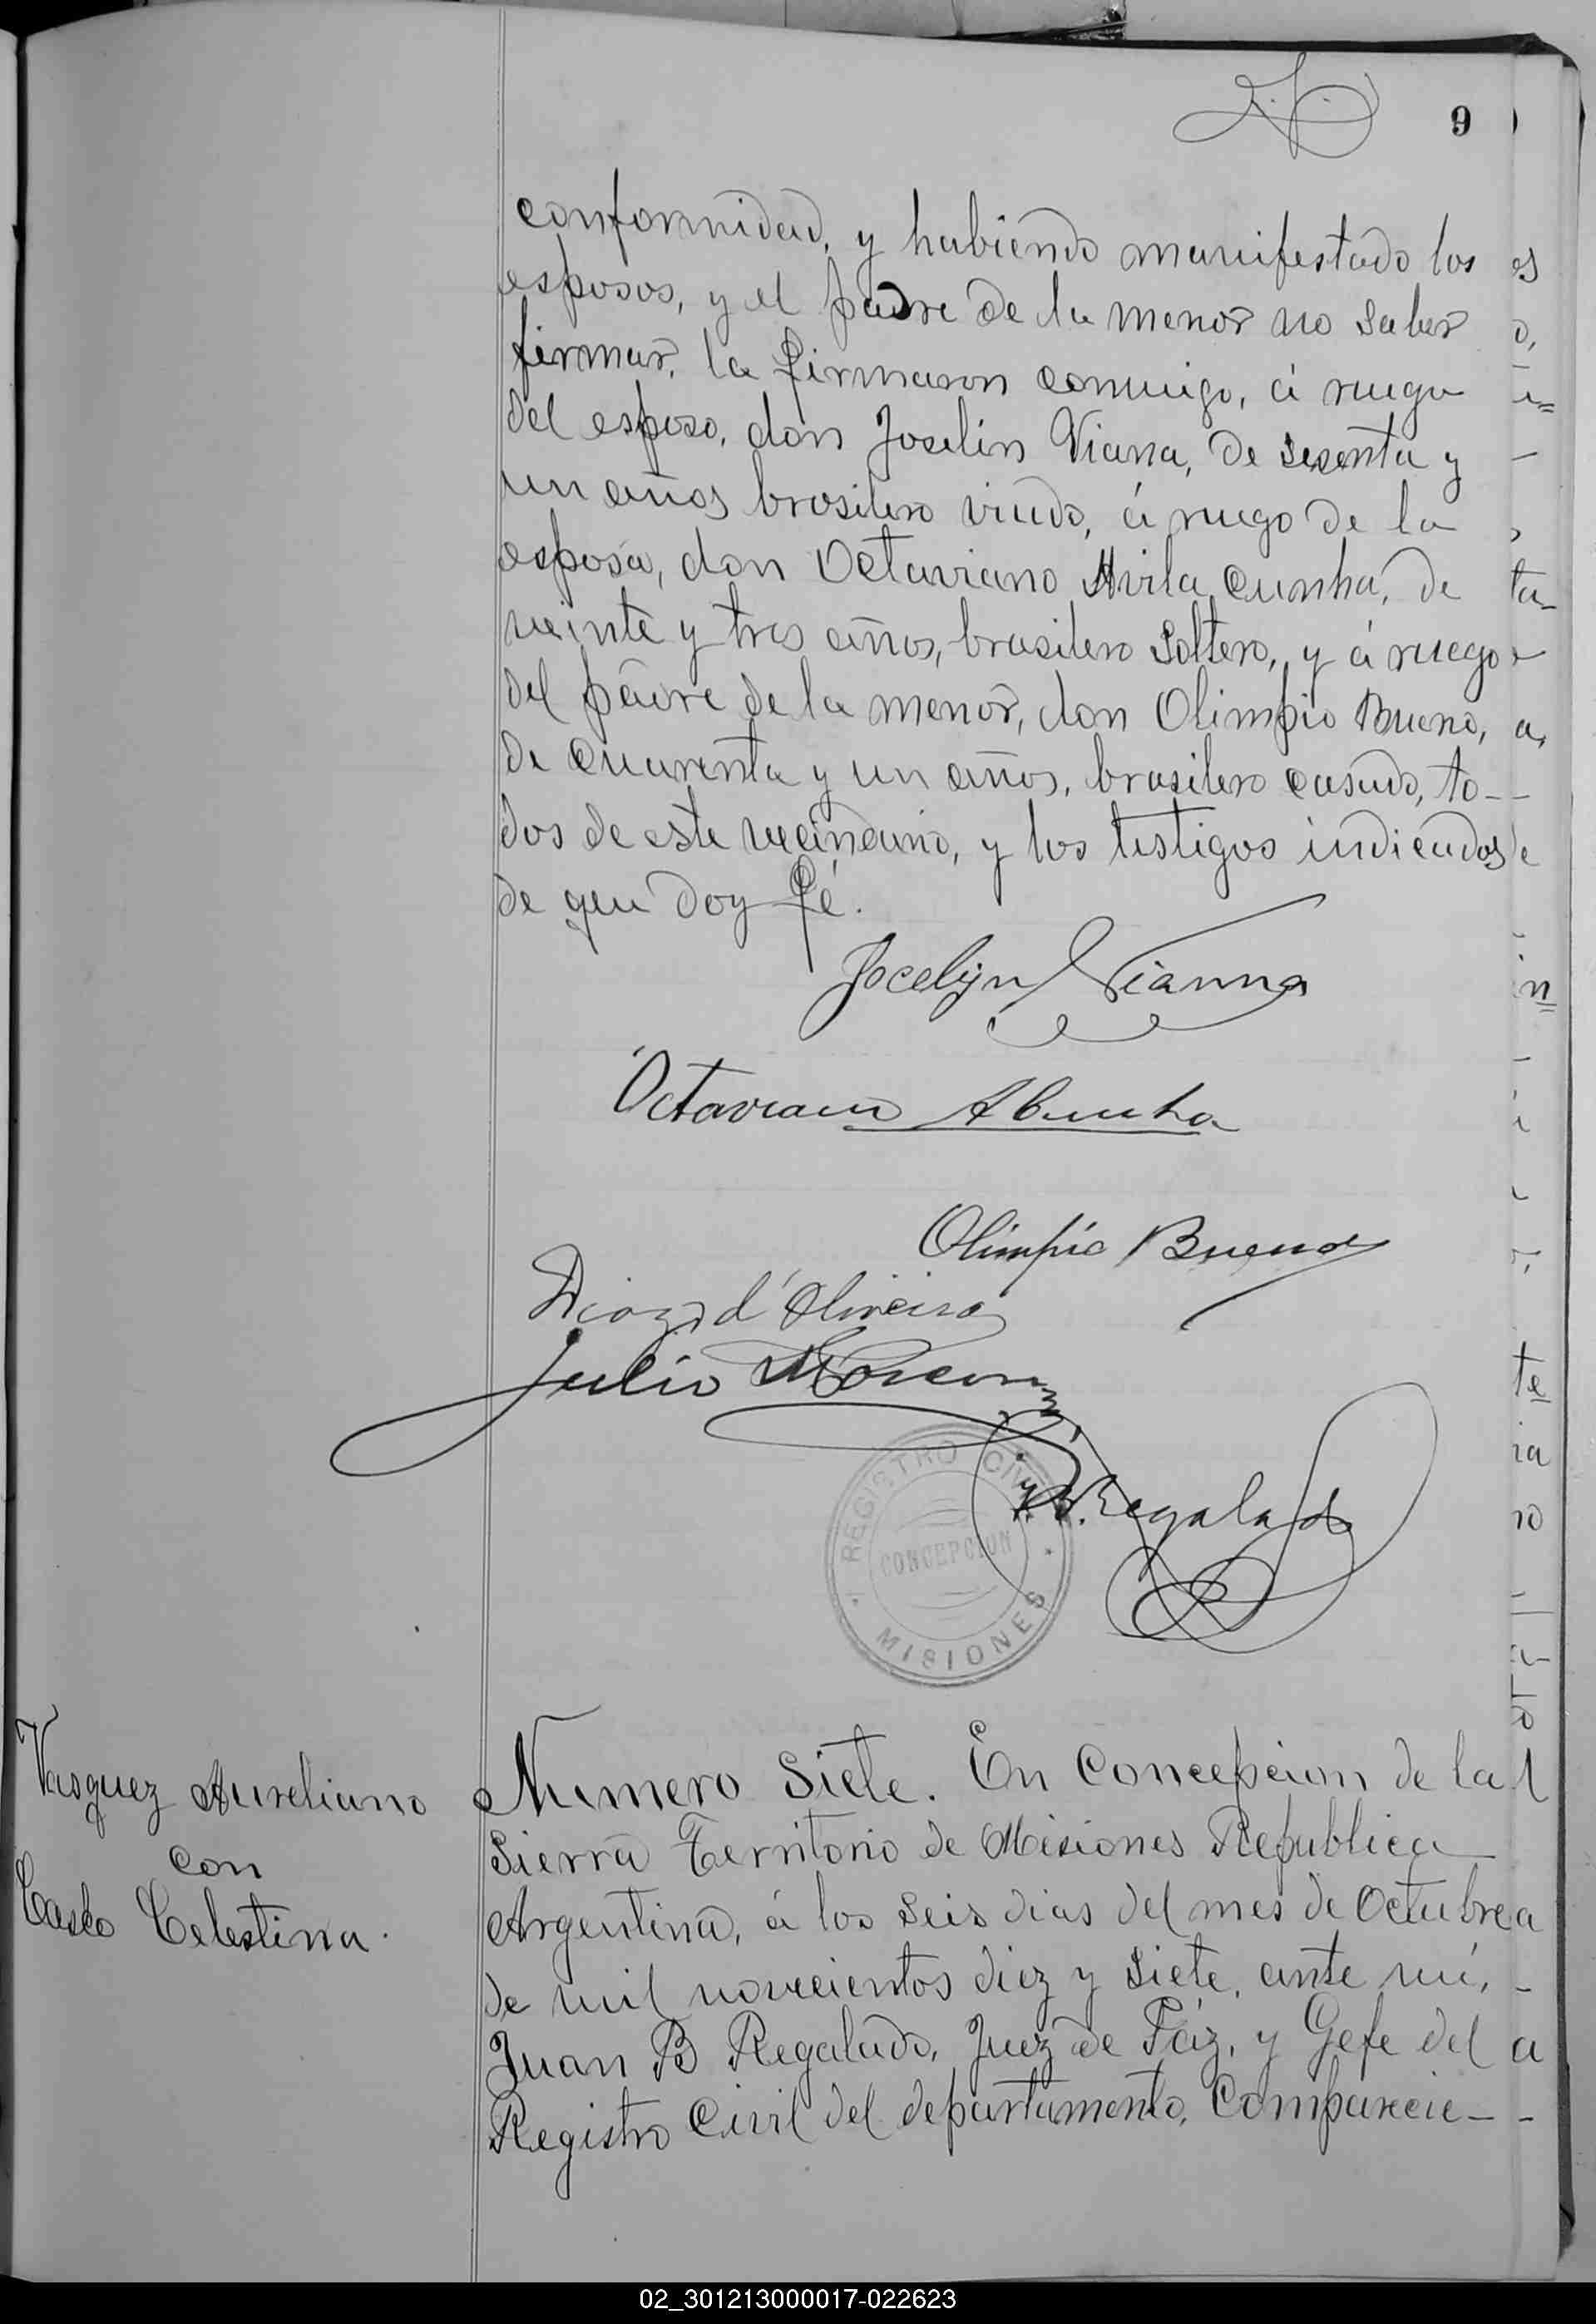 9
conformidad, y habiendo manifestado los
esposos, y el padre de la menor no saber
firmar, la firmaron conmigo, á ruego
del esposo, don Joselin Viana, de sesenta y
un años brasilero viudo, á ruego de la
esposa, don Octaviano Avila Cunha, de
veinte y tres años, brasilero Soltero, y á ruego
del padre de la menor, don Olimpio Bueno,
de cuarenta y un años, brasilero casado, to-
dos de este vecindario, y los testigos indicados
de que doy fé.
Jocelyn Vianna
Octaviano A Cunha
Olimpio Bueno
d'Oliveira
Julio
REGISTRO CIVIL
CONCEPCION
MISIONES
J.B. Regalado
Vasquez Aureliano
con
Casco Celestina.
Numero Siete. En Concepcion de la
Sierra Territorio de Misiones Republica
Argentina, á los seis dias del mes de Octubre
de mil novecientos diez y siete, ante mí,
Juan B Regalado, Juez de Páz, y Gefe del
Registro Civil del departamento, Comparecie-
02_301213000017-022623